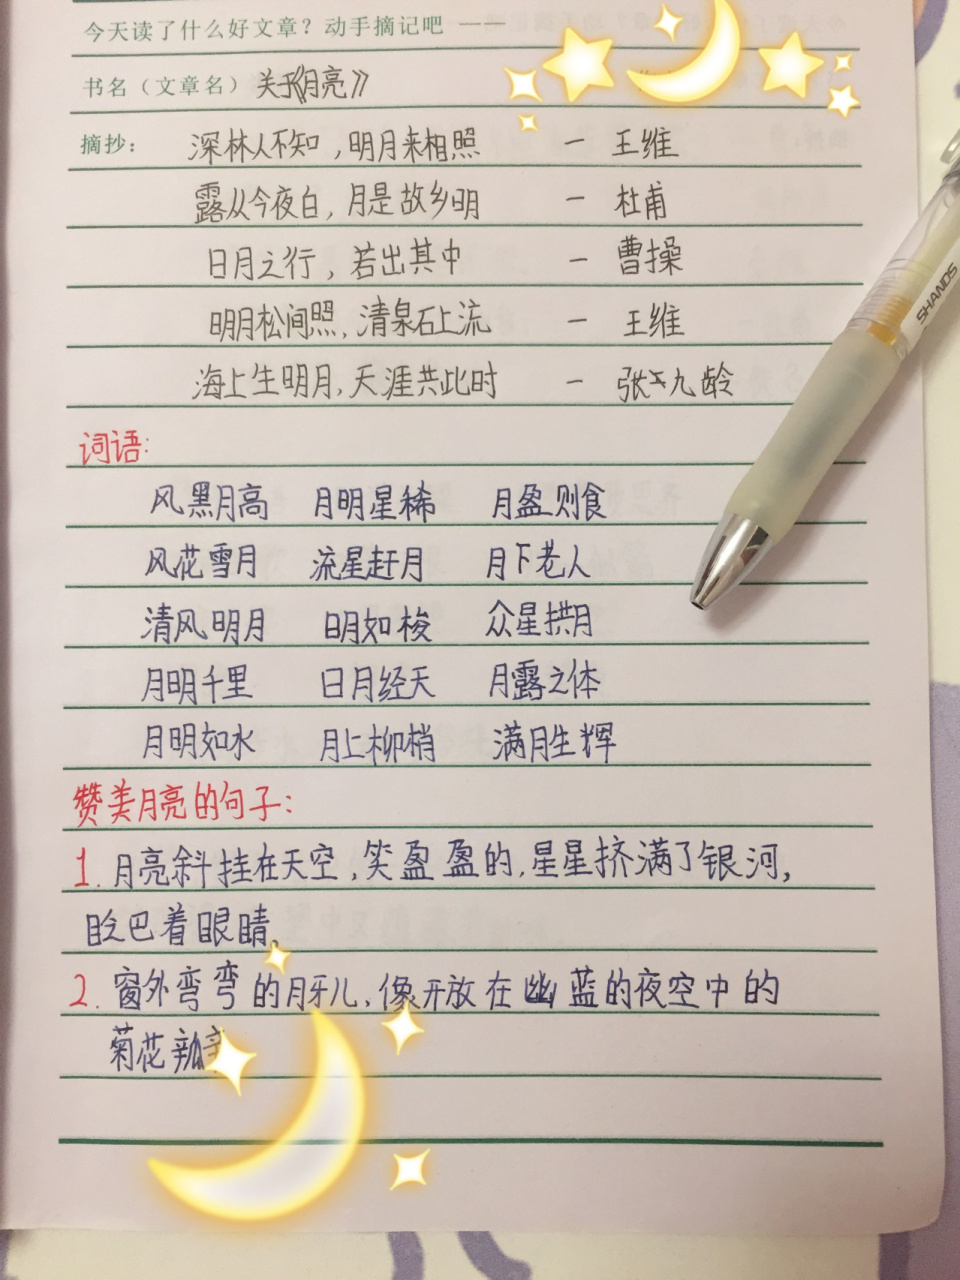 今天读了什么好文章？动手摘记吧 ——
书名（文章名）关于《月亮》
摘抄： 深林人不知，明月来相照 — 王维
露从今夜白，月是故乡明 — 杜甫
日月之行，若出其中 — 曹操
明月松间照，清泉石上流 — 王维
海上生明月，天涯共此时 — 张九龄
词语：
风黑月高 月明星稀 月盈则食
风花雪月 流星赶月 月下老人
清风明月 明如梭 众星拱月
月明千里 日月经天 月露之体
月明如水 月上柳梢 满月生辉
赞美月亮的句子：
1. 月亮斜挂在天空，笑盈盈的，星星挤满了银河，
眨巴着眼睛。
2. 窗外弯弯的月牙儿，像开放在幽蓝的夜空中的
菊花瓣
SHANDS